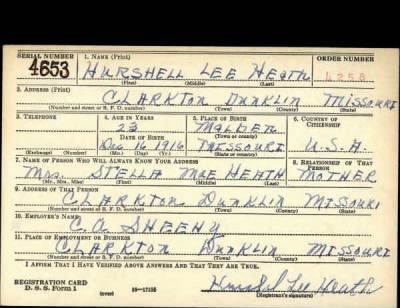 SERIAL NUMBER 1. NAME (Print) ORDER NUMBER
4653 HURSHELL LEE HEATH 4258
(First) (Middle) (Last)
2. ADDRESS (Print)
CLARKTON DUNKLIN MISSOURI
(Number and street or R. F. D. number) (Town) (County) (State)
3. TELEPHONE 4. AGE IN YEARS 5. PLACE OF BIRTH 6. COUNTRY OF CITIZENSHIP
23 MALDEN
DATE OF BIRTH (Town or county)
Dec 16 1916 MISSOURI U.S.A.
(Exchange) (Number) (Mo.) (Day) (Yr.) (State or country)
7. NAME OF PERSON WHO WILL ALWAYS KNOW YOUR ADDRESS 8. RELATIONSHIP OF THAT PERSON
Mrs. STELLA MAE HEATH MOTHER
(Mr., Mrs., Miss) (First) (Middle) (Last)
9. ADDRESS OF THAT PERSON
CLARKTON DUNKLIN MISSOURI
(Number and street or R. F. D. number) (Town) (County) (State)
10. EMPLOYER'S NAME
C.A. SHEEHY
11. PLACE OF EMPLOYMENT OR BUSINESS
CLARKTON DUNKLIN MISSOURI
(Number and street or R. F. D. number) (Town) (County) (State)
I AFFIRM THAT I HAVE VERIFIED ABOVE ANSWERS AND THAT THEY ARE TRUE.
REGISTRATION CARD Hurshel Lee Heath
D. S. S. Form 1 (over) 16—17105 (Registrant's signature)